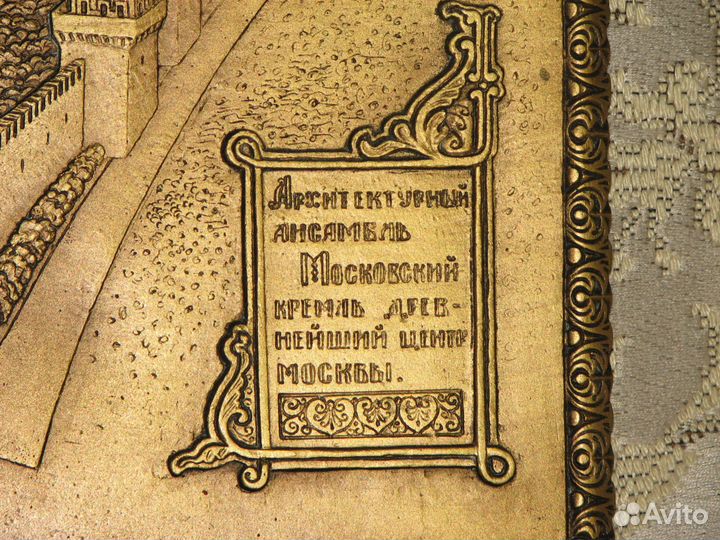 Архитектурный
ансамбль
Московский
кремль древ-
нейший центр
Москвы.
Avito